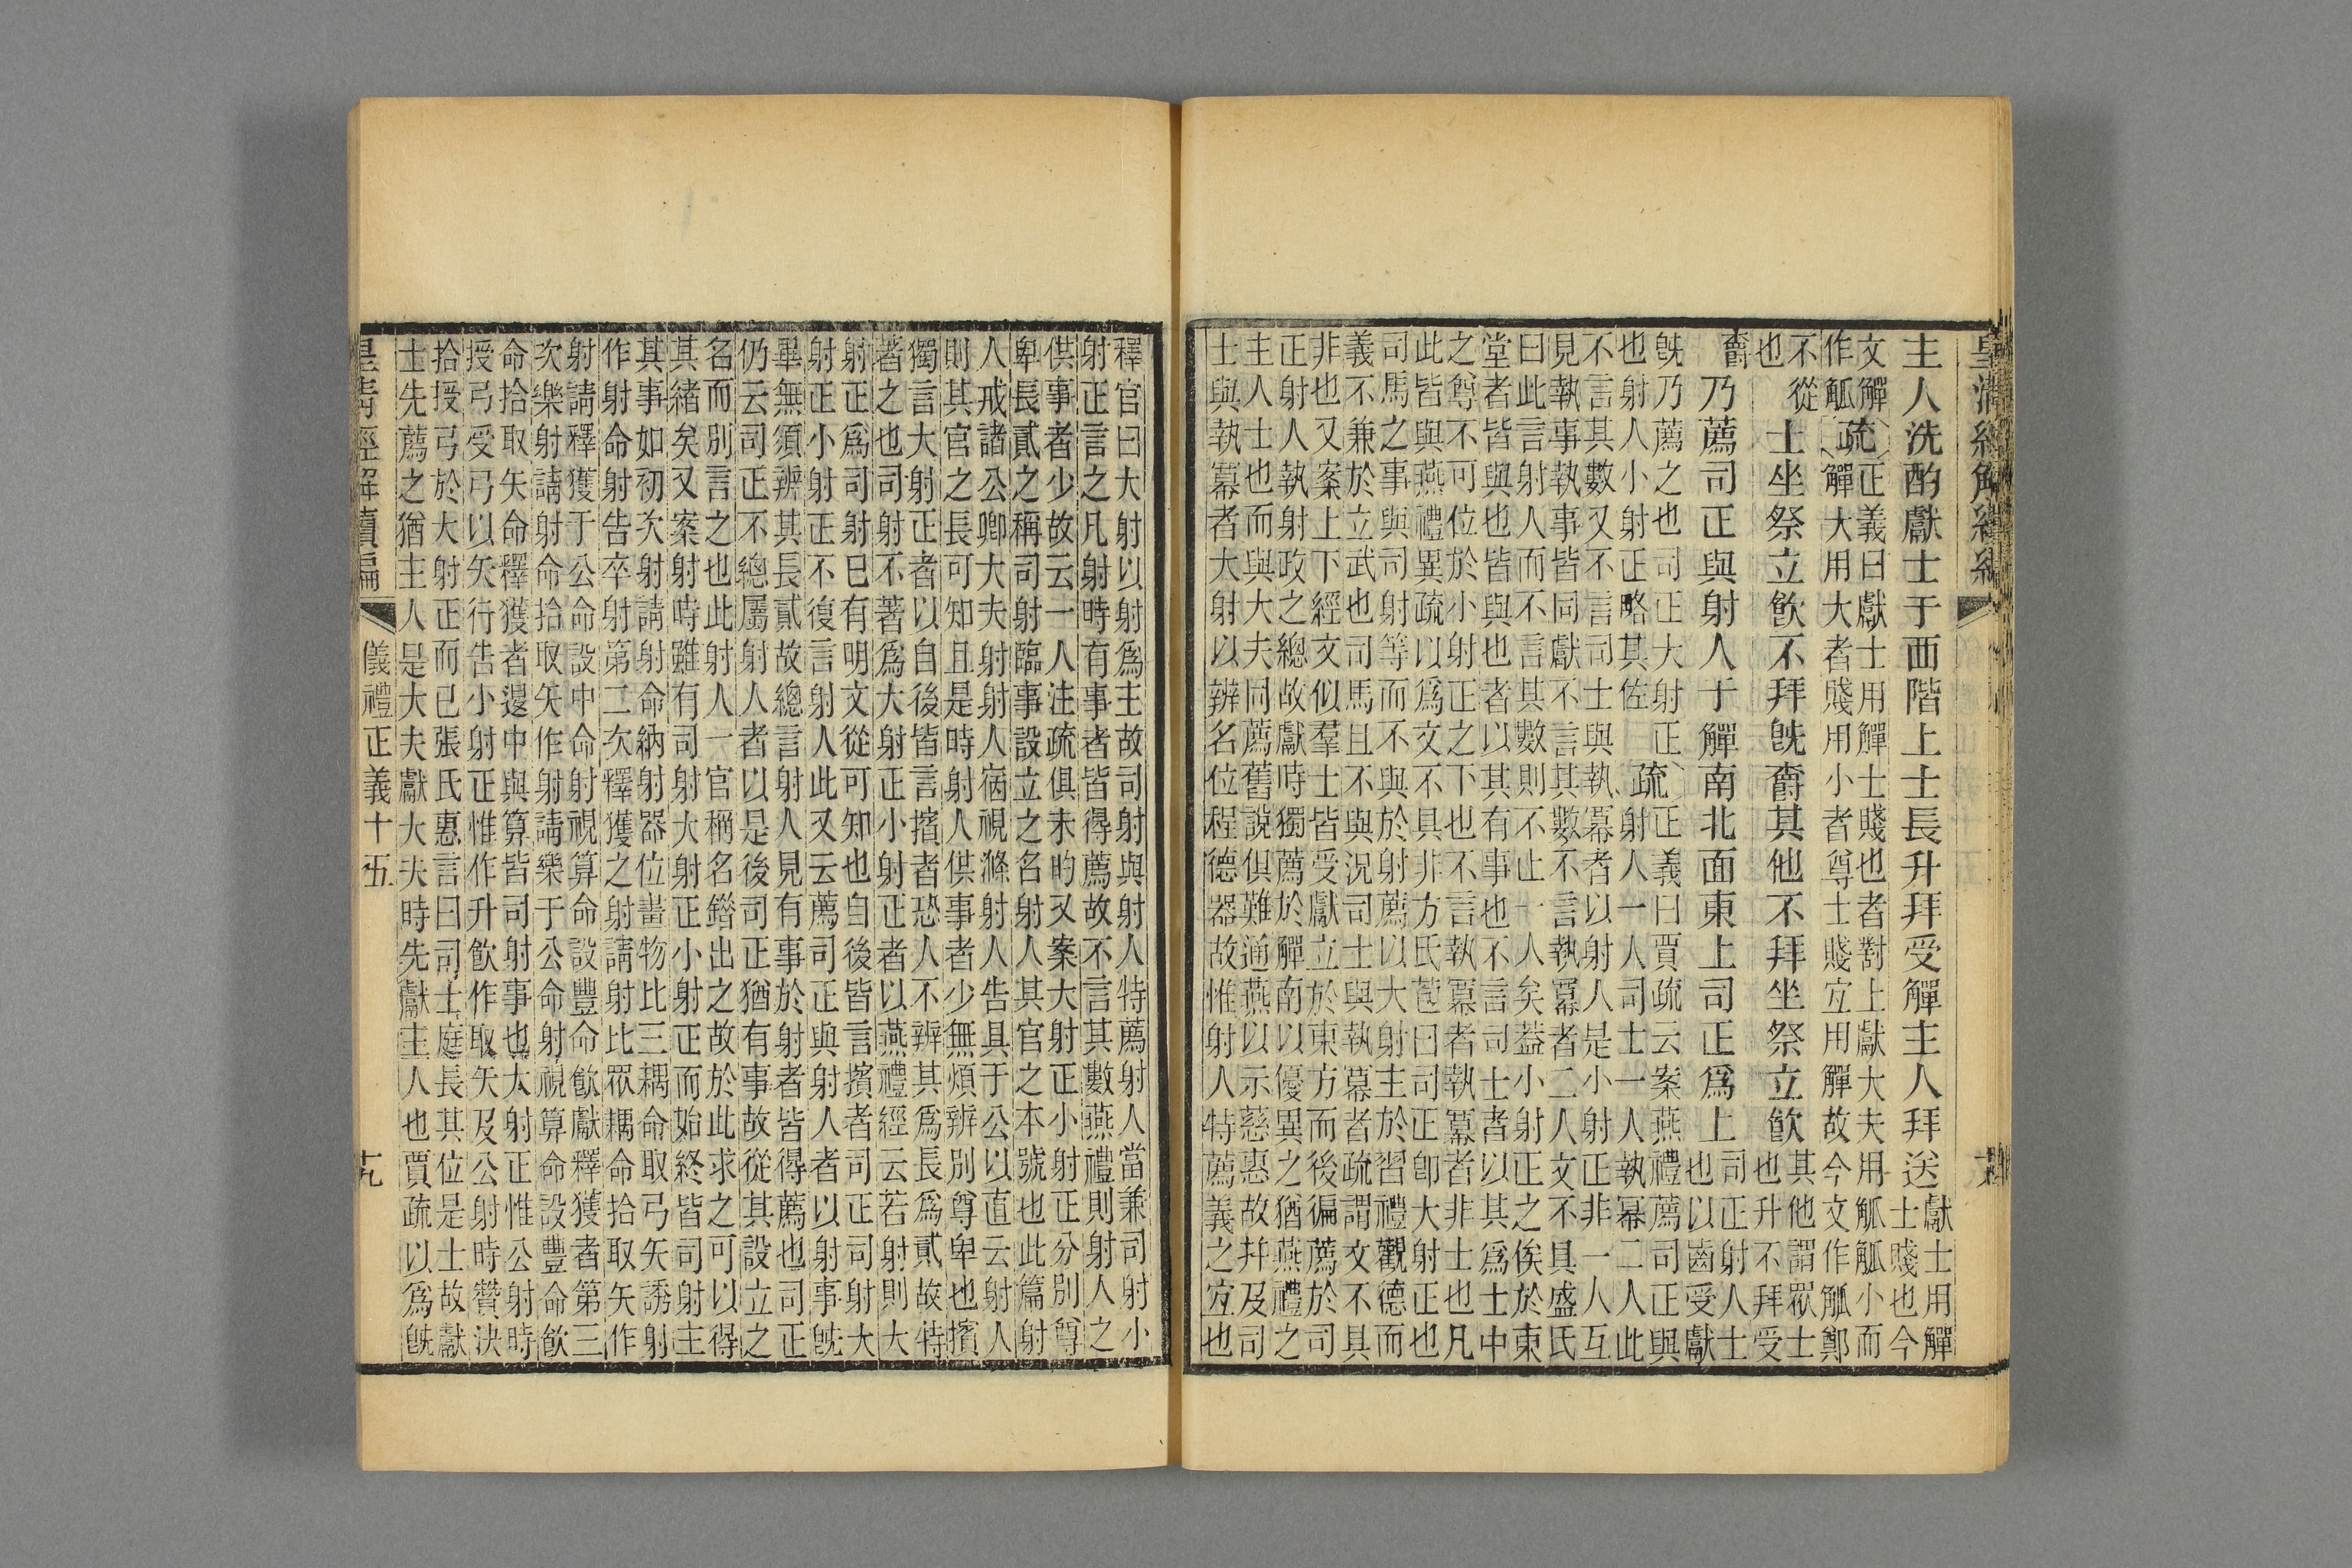 主人洗酌獻士于西階上士長升拜受觶主人拜送獻士用觶
士賤也今
文觶疏正義曰獻士用觶士賤也者對上獻大夫用觚觚小而
作觚觶大用大者賤用小者尊士賤宜用觶故今文作觚鄭
不從士坐祭立飮不拜旣爵其他不拜坐祭立飮其他謂眾士
也也升不拜受
爵乃薦司正與射人于觶南北面東上司正爲上司正射人士
也以齒受獻
旣乃薦之也司正大射正疏正義曰賈疏云案燕禮薦司正與
也射人小射正略其佐射人一人司士一人執冪二人此
不言其數又不言司士與執冪者以射人是小射正非一人互
見執事執事皆同獻不言其數不言執冪者二人文不具盛氏
曰此言射人而不言其數則不止一人矣蓋小射正之俟於東
堂者皆與也皆與也者以其有事也不言司士者以其爲士中
之尊不可位於小射正之下也不言執冪者執冪者非士也凡
此皆與燕禮異疏以爲文不具非方氏苞曰司正卽大射正也
司馬之事與司射等而不與於射薦以大射主於習禮觀德而
義不兼於立武也司馬且不與況司士與執冪者疏謂文不具
非也又案上下經文似羣士皆受獻立於東方而後徧薦於司
正射人執射政之總故獻時獨薦於觶南以優異之猶燕禮之
主人士也而與大夫同薦舊說俱難通燕以示慈惠故幷及司
士與執冪者大射以辨名位程德器故惟射人特薦義之宜也
釋官曰大射以射爲主故司射與射人特薦射人當兼司射小
射正言之凡射時有事者皆得薦故不言其數燕禮則射人之
供事者少故云一人注疏俱未昀又案大射正小射正分別尊
卑長貳之稱司射臨事設立之名射人其官之本號也此篇射
人戒諸公卿大夫射射人宿視滌射人告具于公以直云射人
則其官之長可知且是時射人供事者少無煩辨別尊卑也擯
獨言大射正者以自後皆言擯者恐人不辨其爲長爲貳故特
著之也司射不著爲大射正小射正者以燕禮經云若射則大
射正爲司射已有明文從可知也自後皆言擯者司正司射大
射正小射正不復言射人此又云薦司正與射人者以射事旣
畢無須辨其長貳故總言射人見有事於射者皆得薦也司正
仍云司正不總屬射人者以是後司正猶有事故從其設立之
名而別言之也此射人一官稱名錯出之故於此求之可以得
其緒矣又案射時雖有司射大射正小射正而始終皆司射主
其事如初次射請射命納射器位畫物比三耦命取弓矢誘射
作射命射告卒射第二次釋獲之射請射比眾耦命拾取矢作
射請釋獲于公命設中命射視算命設豐命飮獻釋獲者第三
次樂射請射命拾取矢作射請樂于公命射視算命設豐命飮
命拾取矢命釋獲者退中與算皆司射事也大射正惟公射時
授弓受弓以矢行告小射正惟作升飮作取矢及公射時贊決
拾授弓於大射正而已張氏惠言曰司士庭長其位是士故獻
士先薦之猶主人是大夫獻大夫時先獻主人也賈疏以爲旣
皇淸經解續編 儀禮正義十五 十九